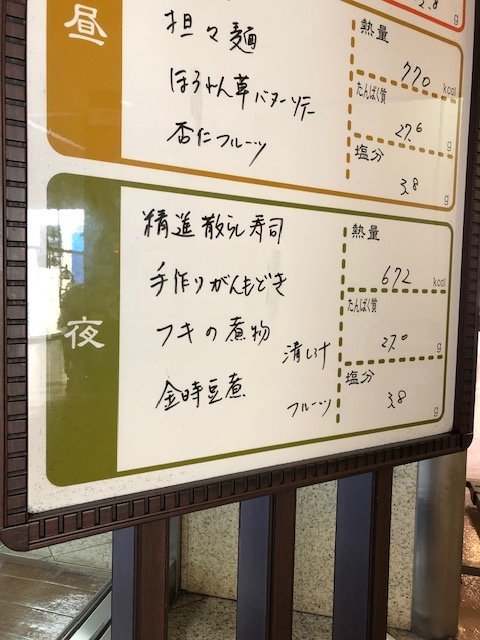 2.8
g
昼
担々麺
ほうれん草バターソテー
杏仁フルーツ
熱量
770
kcal
たんぱく質
27.6
g
塩分
3.8
g
夜
精進散らし寿司
手作りがんもどき
フキの煮物
清し汁
金時豆煮
フルーツ
熱量
672
kcal
たんぱく質
27.0
g
塩分
3.8
g